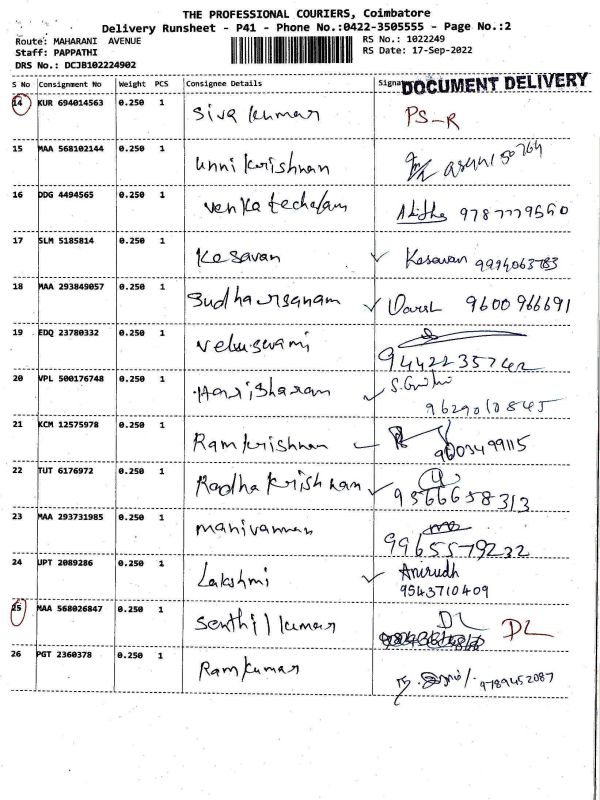 THE PROFESSIONAL COURIERS, Coimbatore
Delivery Runsheet - P41 - Phone No.:0422-3505555 - Page No.:2
Route: MAHARANI AVENUE
RS No.: 1022249
Staff: PAPPATHI
RS Date: 17-Sep-2022
DRS No.: DCJB102224902
S No Consignment No Weight PCS Consignee Details Signat
DOCUMENT DELIVERY
14 KUR 694014563 0.250 1 Siva kumar PS-R
15 MAA 568102144 0.250 1 Unni krishnan
16 DDG 4494565 0.250 1 Venkatechalam
17 SLM 5185814 0.250 1 Kesavan ✓ Kesavan 9994063783
18 MAA 293849057 0.250 1 Sudharsanam ✓ 9600966691
19 EDQ 23780332 0.250 1 Veluswami
9442235742
20 VPL 500176748 0.250 1 Harisharam ✓
9629010845
21 KCM 12575978 0.250 1 Ramkrishnan ✓ 9003499115
22 TUT 6176972 0.250 1 Radha krishnan ✓
9566658313
23 MAA 293731985 0.250 1 Manivannan
9965579232
24 UPT 2089286 0.250 1 Lakshmi ✓ Anirudh
9543710409
25 MAA 568026847 0.250 1 Senthil kumar DL DL
26 PGT 2360378 0.250 1 Ramkumar 9789452087